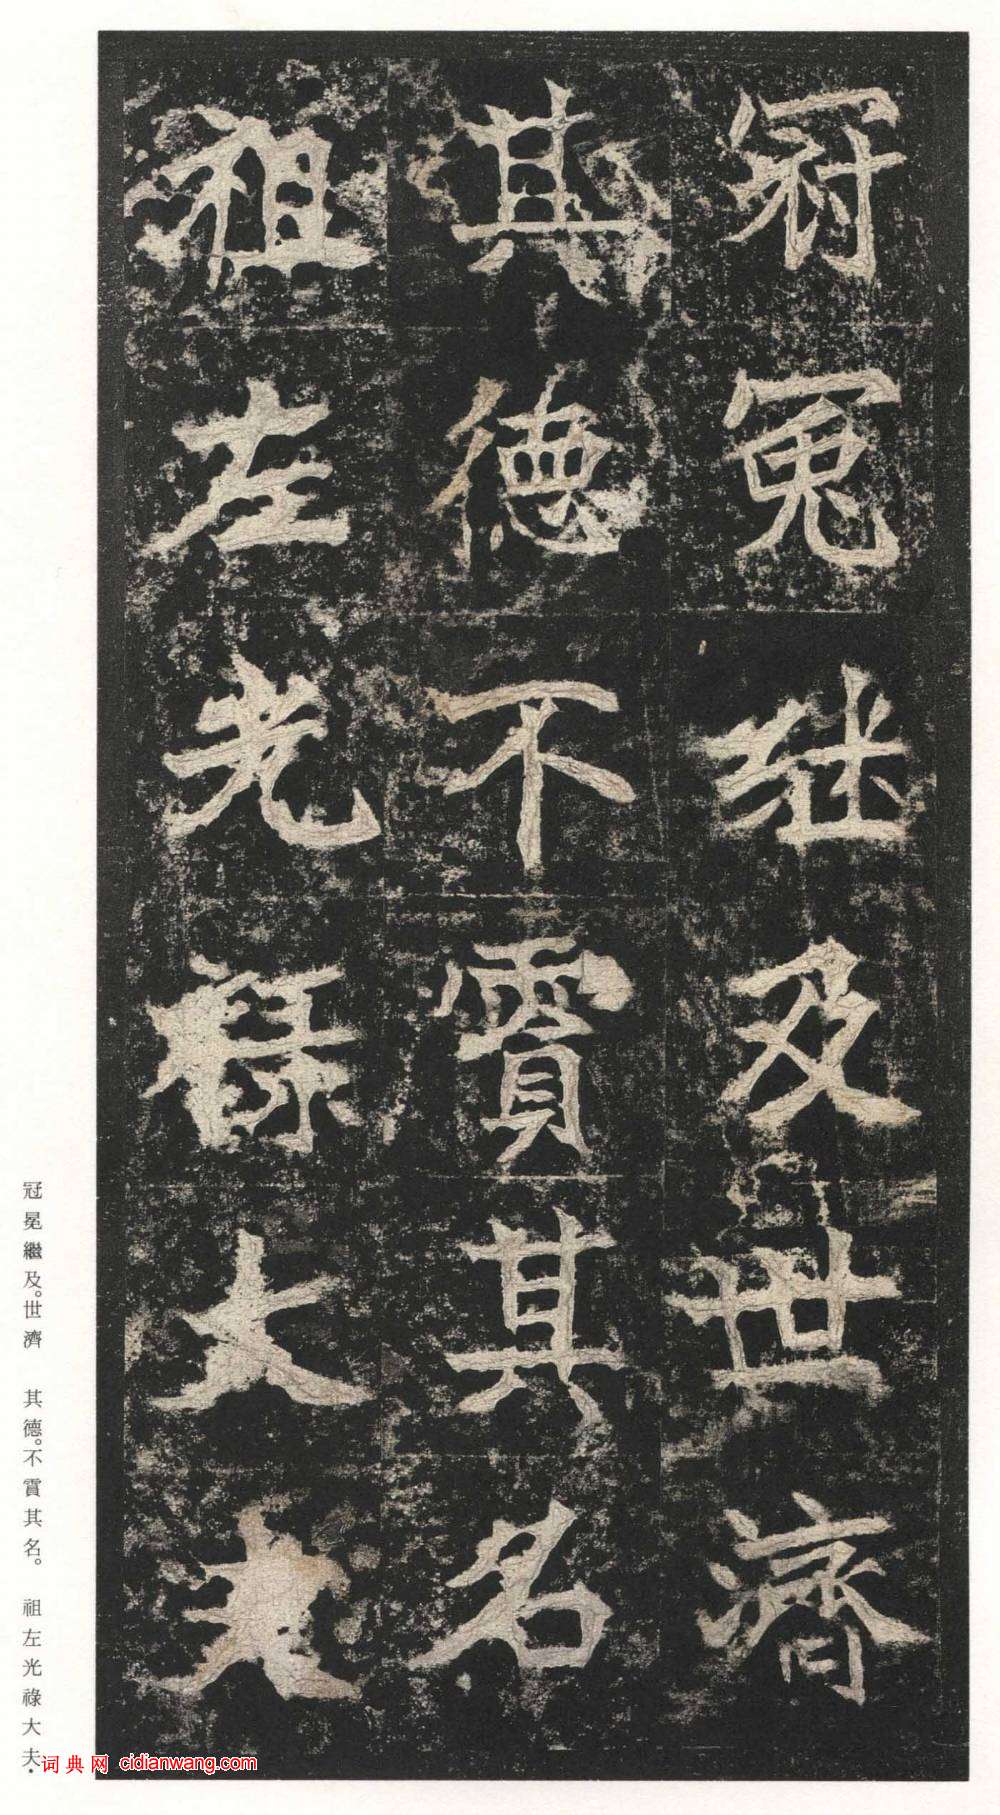 冠冕継及世濟
其德不霣其名
祖左光禄大夫
冠冕繼及。世濟　其德。不霣其名。　祖左光祿大夫·
词典网 cidianwang.com